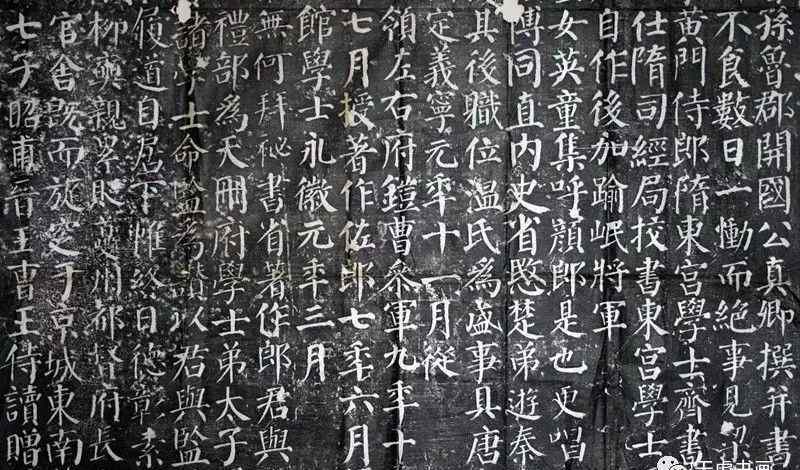 孫魯郡開國公真卿撰并書
不食數日一慟而絕事見
黃門侍郎隋東宮學士齊書
仕隋司經局校書東宮學士
自作後加踰岷將軍
女英童集呼顏郎是也更唱
博同直內史省愍楚弟遊秦
其後職位溫氏為盛事具唐
定義寧元年十一月從
領左右府鎧曹參軍九年十
七月授著作佐郎七年六月
館學士永徽元年三月
無何拜祕書省著作郎君與
禮部為天冊府學士弟太子
諸學士命監為讚以君與監
履道自居下帷終日德彰素
柳奭親累貶夔州都督府長
官舍既而旋窆于京城東南
七子昭甫晉王曹王侍讀贈
书画